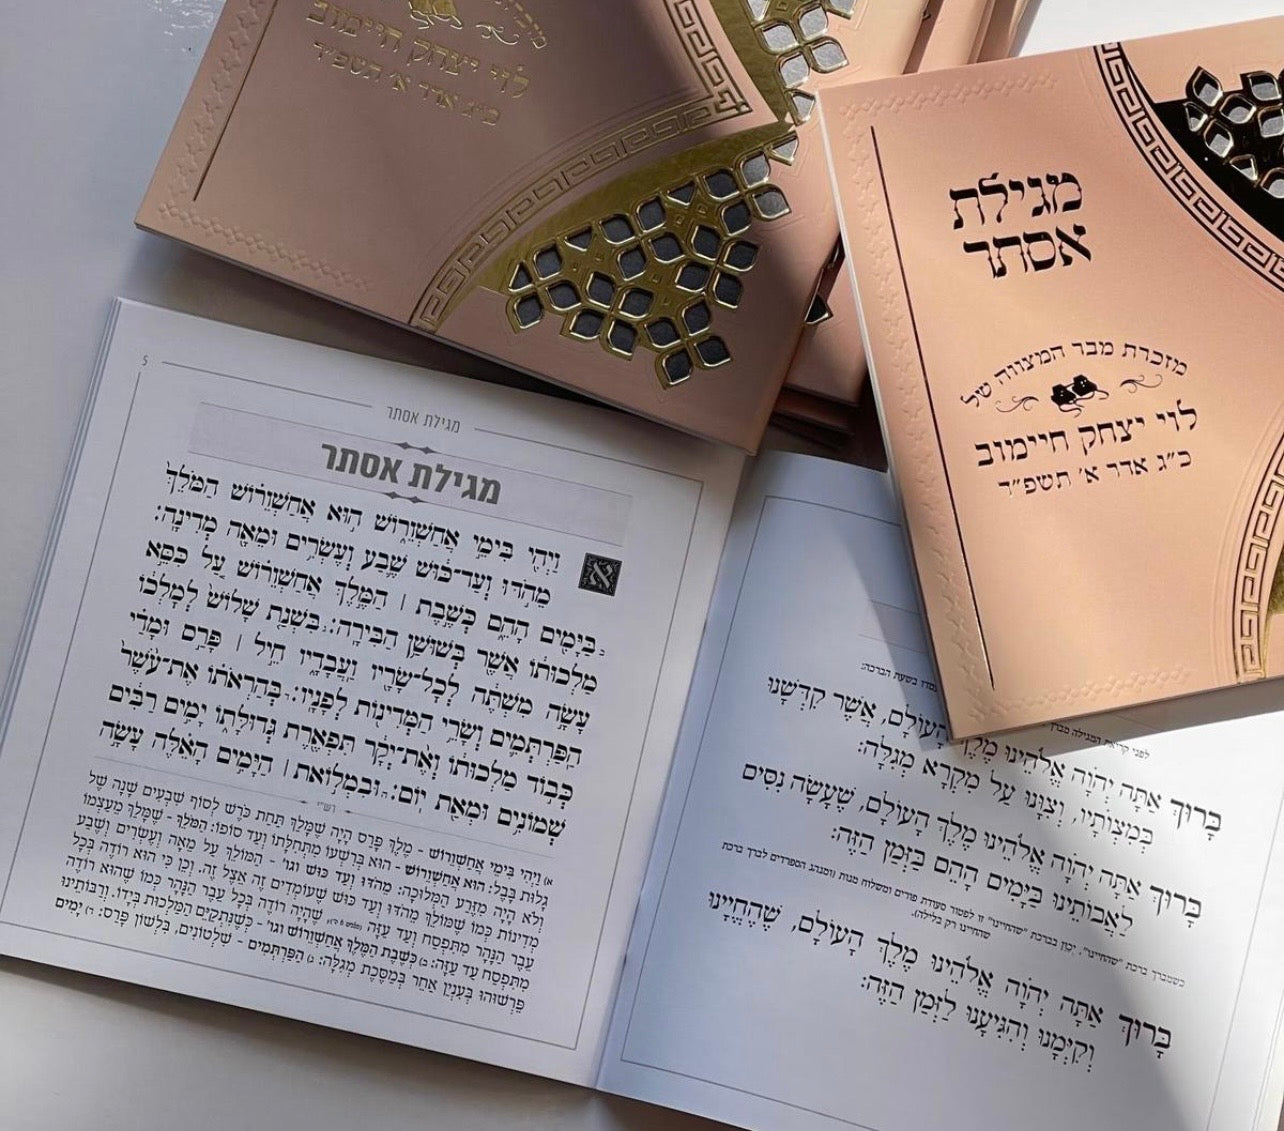 מזכרת
לוי יצחק חיימוב
כ״ג אדר א׳ תשפ״ד
מגילת
אסתר
מזכרת מבר המצווה של
לוי יצחק חיימוב
כ״ג אדר א׳ תשפ״ד
5
מגילת אסתר
מגילת אסתר
א
וַיְהִי בִּימֵי אֲחַשְׁוֵרוֹשׁ הוּא אֲחַשְׁוֵרוֹשׁ הַמֹּלֵךְ
מֵהֹדּוּ וְעַד־כּוּשׁ שֶׁבַע וְעֶשְׂרִים וּמֵאָה מְדִינָה:
בַּיָּמִים הָהֵם כְּשֶׁבֶת | הַמֶּלֶךְ אֲחַשְׁוֵרוֹשׁ עַל כִּסֵּא
מַלְכוּתוֹ אֲשֶׁר בְּשׁוּשַׁן הַבִּירָה: בִּשְׁנַת שָׁלוֹשׁ לְמָלְכוֹ
עָשָׂה מִשְׁתֶּה לְכָל־שָׂרָיו וַעֲבָדָיו חֵיל | פָּרַס וּמָדַי
הַפַּרְתְּמִים וְשָׂרֵי הַמְּדִינוֹת לְפָנָיו: בְּהַרְאֹתוֹ אֶת־עֹשֶׁר
כְּבוֹד מַלְכוּתוֹ וְאֶת־יְקָר תִּפְאֶרֶת גְּדוּלָּתוֹ יָמִים רַבִּים
שְׁמוֹנִים וּמְאַת יוֹם: וּבִמְלוֹאת | הַיָּמִים הָאֵלֶּה עָשָׂה
רש״י
א) וַיְהִי בִּימֵי אֲחַשְׁוֵרוֹשׁ - מֶלֶךְ פָּרַס הָיָה שֶׁמָּלַךְ תַּחַת כֹּרֶשׁ לְסוֹף שִׁבְעִים שָׁנָה שֶׁל
גָּלוּת בָּבֶל: הוּא אֲחַשְׁוֵרוֹשׁ - הוּא בְּרִשְׁעוֹ מִתְּחִלָּתוֹ וְעַד סוֹפוֹ: הַמֹּלֵךְ - שֶׁמָּלַךְ מֵעַצְמוֹ
וְלֹא הָיָה מִזֶּרַע הַמְּלוּכָה: מֵהֹדּוּ וְעַד כּוּשׁ וגו׳ - הַמּוֹלֵךְ עַל מֵאָה וְעֶשְׂרִים וְשֶׁבַע
מְדִינוֹת כְּמוֹ שֶׁמּוֹלֵךְ מֵהֹדּוּ וְעַד כּוּשׁ שֶׁעוֹמְדִים זֶה אֵצֶל זֶה. וְכֵן כִּי הוּא רוֹדֶה בְּכָל
עֵבֶר הַנָּהָר מִתִּפְסַח וְעַד עַזָּה שֶׁהָיָה רוֹדֶה בְּכָל עֵבֶר הַנָּהָר כְּמוֹ שֶׁהוּא רוֹדֶה
מִתִּפְסַח עַד עַזָּה: ב) כְּשֶׁבֶת הַמֶּלֶךְ אֲחַשְׁוֵרוֹשׁ וגו׳ - כְּשֶׁנִּתְקַיֵּם הַמַּלְכוּת בְּיָדוֹ. וְרַבּוֹתֵינוּ
פֵּרְשׁוּהוּ בְּעִנְיָן אַחֵר בְּמַסֶּכֶת מְגִלָּה: ג) הַפַּרְתְּמִים - שִׁלְטוֹנִים, בִּלְשׁוֹן פָּרַס: ד) יָמִים
בשעת הברכה:
לפני קריאת המגילה מברך
בָּרוּךְ אַתָּה יְהֹוָה אֱלֹהֵינוּ מֶלֶךְ הָעוֹלָם, אֲשֶׁר קִדְּשָׁנוּ
בְּמִצְוֹתָיו, וְצִוָּנוּ עַל מִקְרָא מְגִלָּה:
בָּרוּךְ אַתָּה יְהֹוָה אֱלֹהֵינוּ מֶלֶךְ הָעוֹלָם, שֶׁעָשָׂה נִסִּים
לַאֲבוֹתֵינוּ בַּיָּמִים הָהֵם בַּזְּמַן הַזֶּה:
כשמברך ברכת "שהחיינו", יכוין בברכת "שהחיינו" זו לפטור סעודת פורים ומשלוח מנות (ומנהג הספרדים לברך ברכת
שהחיינו רק בלילה).
בָּרוּךְ אַתָּה יְהֹוָה אֱלֹהֵינוּ מֶלֶךְ הָעוֹלָם, שֶׁהֶחֱיָנוּ
וְקִיְּמָנוּ וְהִגִּיעָנוּ לַזְּמַן הַזֶּה: